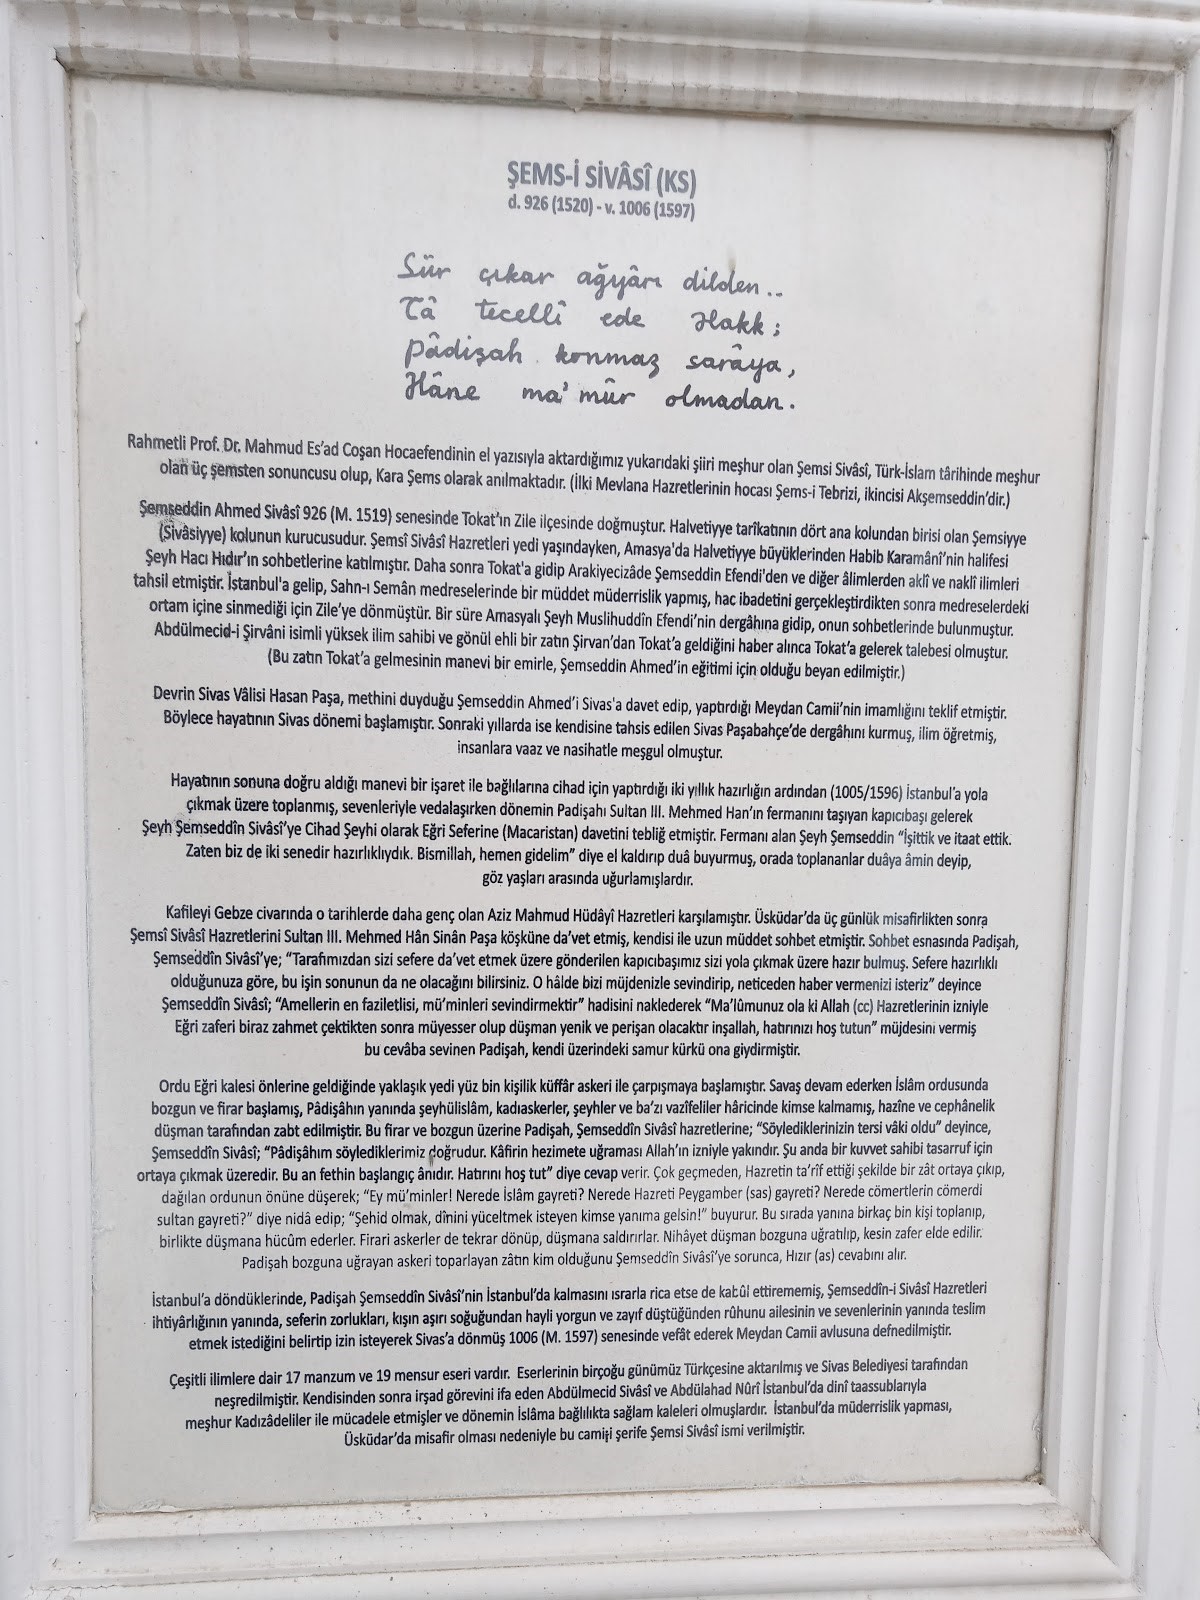 ŞEMS-İ SİVÂSÎ (KS)
d. 926 (1520) - v. 1006 (1597)
Sür çıkar ağyârı dilden..
Tâ tecellî ede Hakk;
Pâdişah konmaz sarâya,
Hâne ma'mûr olmadan.
Rahmetli Prof. Dr. Mahmud Es'ad Coşan Hocaefendinin el yazısıyla aktardığımız yukarıdaki şiiri meşhur olan Şemsi Sivâsî, Türk-İslam târihinde meşhur
olan üç şemsten sonuncusu olup, Kara Şems olarak anılmaktadır. (İlki Mevlana Hazretlerinin hocası Şems-i Tebrizi, ikincisi Akşemseddin'dir.)
Şemseddin Ahmed Sivâsî 926 (M. 1519) senesinde Tokat'ın Zile ilçesinde doğmuştur. Halvetiyye tarîkatının dört ana kolundan birisi olan Şemsiyye
(Sivâsiyye) kolunun kurucusudur. Şemsî Sivâsî Hazretleri yedi yaşındayken, Amasya'da Halvetiyye büyüklerinden Habib Karamânî'nin halifesi
Şeyh Hacı Hıdır'ın sohbetlerine katılmıştır. Daha sonra Tokat'a gidip Arakiyecizâde Şemseddin Efendi'den ve diğer âlimlerden aklî ve naklî ilimleri
tahsil etmiştir. İstanbul'a gelip, Sahn-ı Semân medreselerinde bir müddet müderrislik yapmış, hac ibadetini gerçekleştirdikten sonra medreselerdeki
ortam içine sinmediği için Zile'ye dönmüştür. Bir süre Amasyalı Şeyh Muslihuddîn Efendi'nin dergâhına gidip, onun sohbetlerinde bulunmuştur.
Abdülmecid-i Şirvâni isimli yüksek ilim sahibi ve gönül ehli bir zatın Şirvan'dan Tokat'a geldiğini haber alınca Tokat'a gelerek talebesi olmuştur.
(Bu zatın Tokat'a gelmesinin manevi bir emirle, Şemseddin Ahmed'in eğitimi için olduğu beyan edilmiştir.)
Devrin Sivas Vâlisi Hasan Paşa, methini duyduğu Şemseddin Ahmed'i Sivas'a davet edip, yaptırdığı Meydan Camii'nin imamlığını teklif etmiştir.
Böylece hayatının Sivas dönemi başlamıştır. Sonraki yıllarda ise kendisine tahsis edilen Sivas Paşabahçe'de dergâhını kurmuş, ilim öğretmiş,
insanlara vaaz ve nasihatle meşgul olmuştur.
Hayatının sonuna doğru aldığı manevi bir işaret ile bağlılarına cihad için yaptırdığı iki yıllık hazırlığın ardından (1005/1596) İstanbul'a yola
çıkmak üzere toplanmış, sevenleriyle vedalaşırken dönemin Padişahı Sultan III. Mehmed Han'ın fermanını taşıyan kapıcıbaşı gelerek
Şeyh Şemseddîn Sivâsî'ye Cihad Şeyhi olarak Eğri Seferine (Macaristan) davetini tebliğ etmiştir. Fermanı alan Şeyh Şemseddin "İşittik ve itaat ettik.
Zaten biz de iki senedir hazırlıklıydık. Bismillah, hemen gidelim" diye el kaldırıp duâ buyurmuş, orada toplananlar duâya âmin deyip,
göz yaşları arasında uğurlamışlardır.
Kafileyi Gebze civarında o tarihlerde daha genç olan Aziz Mahmud Hüdâyî Hazretleri karşılamıştır. Üsküdar'da üç günlük misafirlikten sonra
Şemsî Sivâsî Hazretlerini Sultan III. Mehmed Hân Sinân Paşa köşküne da'vet etmiş, kendisi ile uzun müddet sohbet etmiştir. Sohbet esnasında Padişah,
Şemseddîn Sivâsî'ye; "Tarafımızdan sizi sefere da'vet etmek üzere gönderilen kapıcıbaşımız sizi yola çıkmak üzere hazır bulmuş. Sefere hazırlıklı
olduğunuza göre, bu işin sonunun da ne olacağını bilirsiniz. O hâlde bizi müjdenizle sevindirip, neticeden haber vermenizi isteriz" deyince
Şemseddîn Sivâsî; "Amellerin en faziletlisi, mü'minleri sevindirmektir" hadisini naklederek "Ma'lûmunuz ola ki Allah (cc) Hazretlerinin izniyle
Eğri zaferi biraz zahmet çektikten sonra müyesser olup düşman yenik ve perişan olacaktır inşallah, hatırınızı hoş tutun" müjdesini vermiş
bu cevâba sevinen Padişah, kendi üzerindeki samur kürkü ona giydirmiştir.
Ordu Eğri kalesi önlerine geldiğinde yaklaşık yedi yüz bin kişilik küffâr askeri ile çarpışmaya başlamıştır. Savaş devam ederken İslâm ordusunda
bozgun ve firar başlamış, Pâdişâhın yanında şeyhülislâm, kadıaskerler, şeyhler ve ba'zı vazîfeliler hâricinde kimse kalmamış, hazîne ve cephânelik
düşman tarafından zabt edilmiştir. Bu firar ve bozgun üzerine Padişah, Şemseddîn Sivâsî hazretlerine; "Söylediklerinizin tersi vâki oldu" deyince,
Şemseddîn Sivâsî; "Pâdişâhım söylediklerimiz doğrudur. Kâfirin hezimete uğraması Allah'ın izniyle yakındır. Şu anda bir kuvvet sahibi tasarruf için
ortaya çıkmak üzeredir. Bu an fethin başlangıç ânıdır. Hatırını hoş tut" diye cevap verir. Çok geçmeden, Hazretin ta'rîf ettiği şekilde bir zât ortaya çıkıp,
dağılan ordunun önüne düşerek; "Ey mü'minler! Nerede İslâm gayreti? Nerede Hazreti Peygamber (sas) gayreti? Nerede cömertlerin cömerdi
sultan gayreti?" diye nidâ edip; "Şehid olmak, dînini yüceltmek isteyen kimse yanıma gelsin!" buyurur. Bu sırada yanına birkaç bin kişi toplanıp,
birlikte düşmana hücûm ederler. Firari askerler de tekrar dönüp, düşmana saldırırlar. Nihâyet düşman bozguna uğratılıp, kesin zafer elde edilir.
Padişah bozguna uğrayan askeri toparlayan zâtın kim olduğunu Şemseddîn Sivâsî'ye sorunca, Hızır (as) cevabını alır.
İstanbul'a döndüklerinde, Padişah Şemseddîn Sivâsî'nin İstanbul'da kalmasını ısrarla rica etse de kabûl ettirememiş, Şemseddîn-i Sivâsî Hazretleri
ihtiyârlığının yanında, seferin zorlukları, kışın aşırı soğuğundan hayli yorgun ve zayıf düştüğünden rûhunu ailesinin ve sevenlerinin yanında teslim
etmek istediğini belirtip izin isteyerek Sivas'a dönmüş 1006 (M. 1597) senesinde vefât ederek Meydan Camii avlusuna defnedilmiştir.
Çeşitli ilimlere dair 17 manzum ve 19 mensur eseri vardır. Eserlerinin birçoğu günümüz Türkçesine aktarılmış ve Sivas Belediyesi tarafından
neşredilmiştir. Kendisinden sonra irşad görevini ifa eden Abdülmecid Sivâsî ve Abdülahad Nûrî İstanbul'da dinî taassublarıyla
meşhur Kadızâdeliler ile mücadele etmişler ve dönemin İslâma bağlılıkta sağlam kaleleri olmuşlardır. İstanbul'da müderrislik yapması,
Üsküdar'da misafir olması nedeniyle bu camiţi şerife Şemsi Sivâsî ismi verilmiştir.